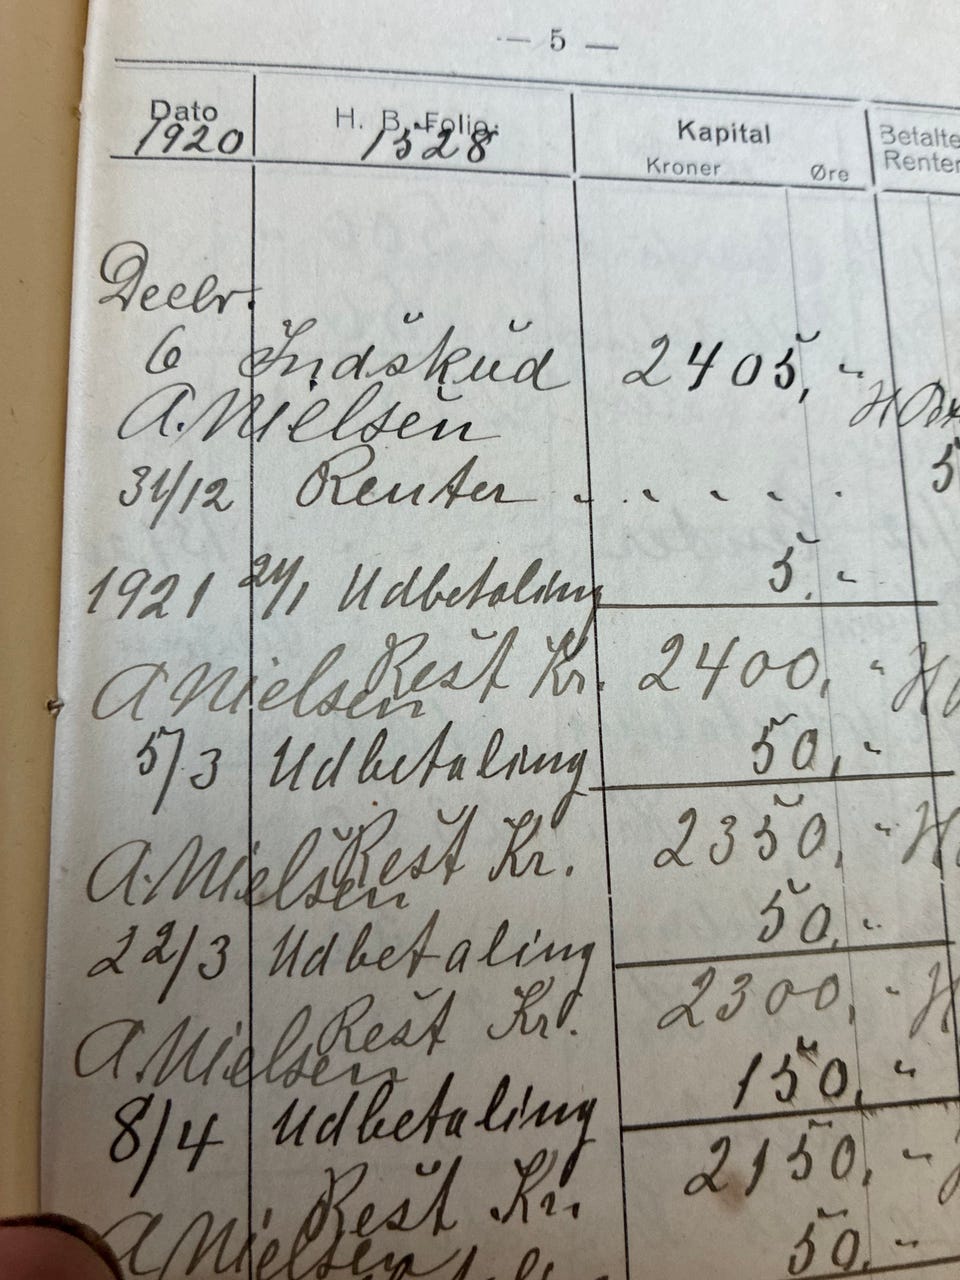 — 5 —
Dato H. B. Folio: Kapital Betalte
1920 1528 Kroner Øre Renter
Decbr.
6 Indskud 2405, "
A. Nielsen
31/12 Renter . . . . . . 5
1921 24/1 Udbetaling 5, "
Rest Kr. 2400, " H
A Nielsen
5/3 Udbetaling 50, "
Rest Kr. 2350, " H
A. Nielsen
22/3 Udbetaling 50, "
Rest Kr. 2300, " H
A. Nielsen
8/4 Udbetaling 150, "
Rest Kr. 2150, "
A Nielsen 50, "